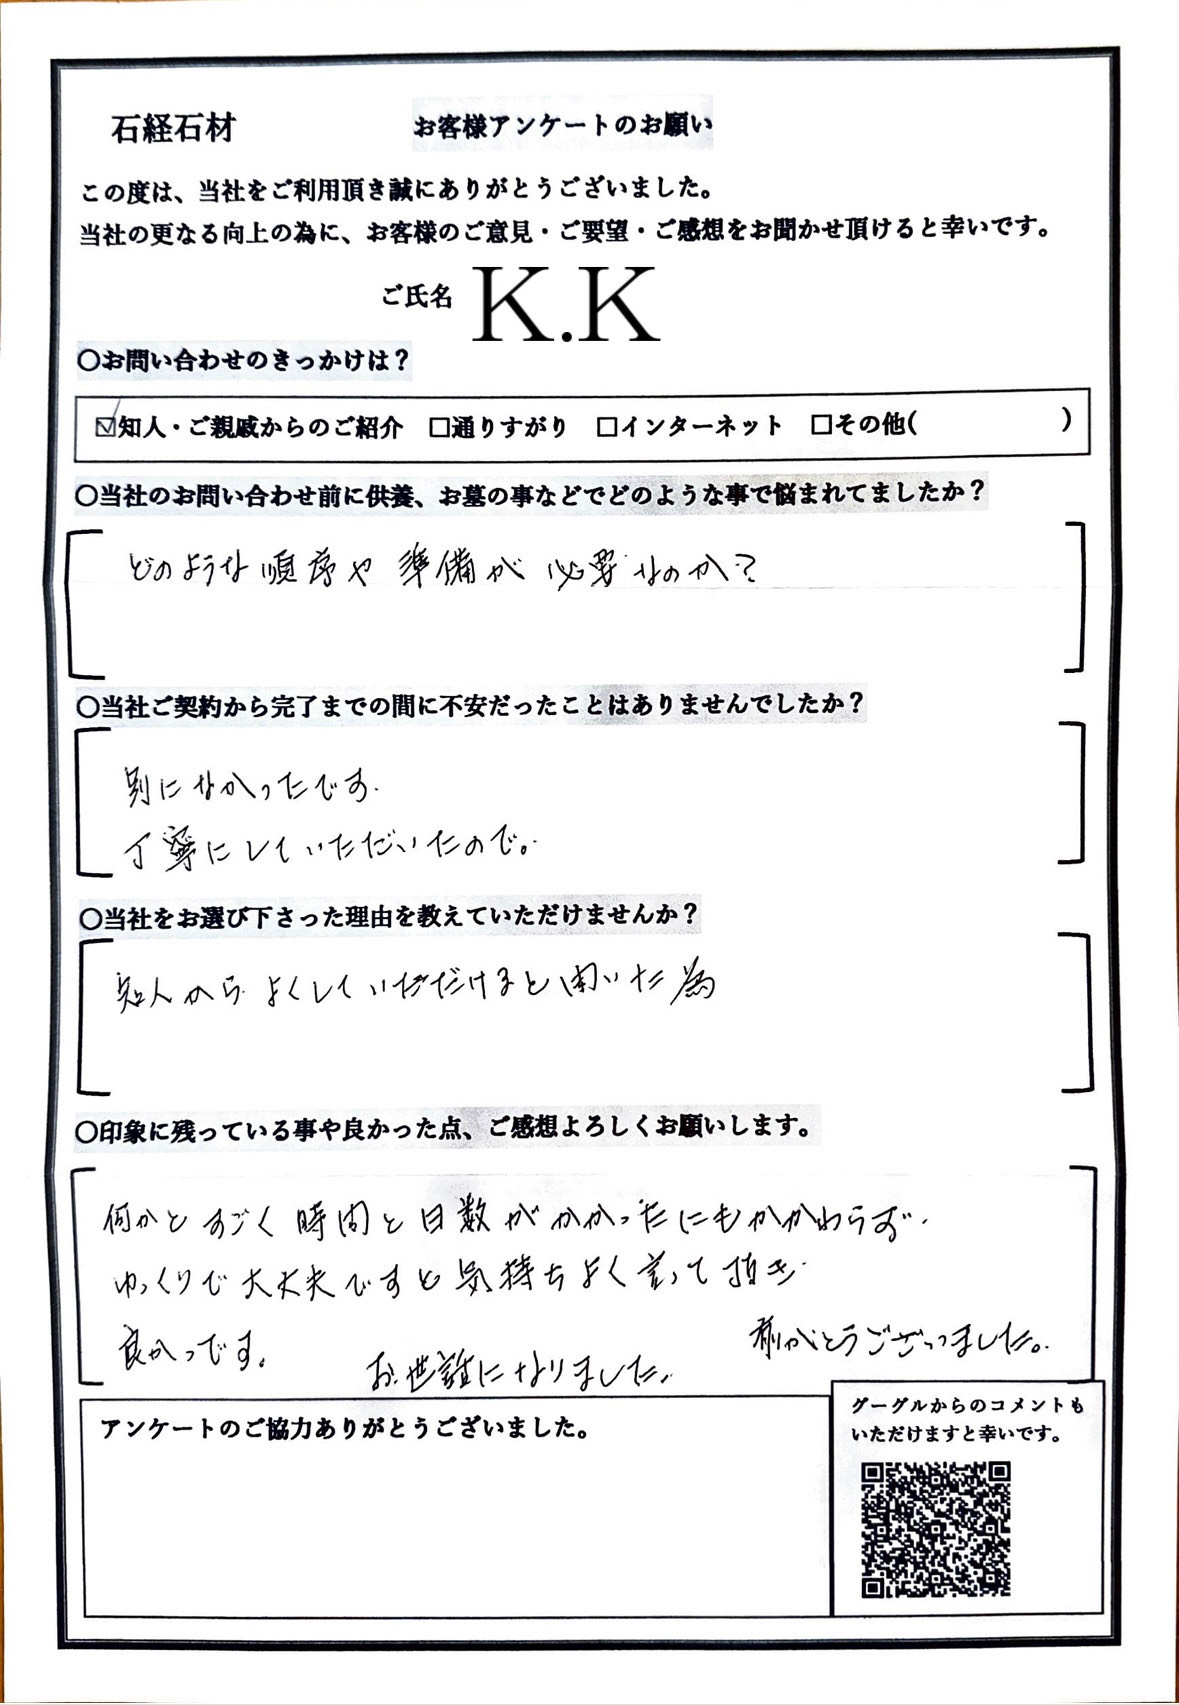 石経石材　お客様アンケートのお願い
この度は、当社をご利用頂き誠にありがとうございました。
当社の更なる向上の為に、お客様のご意見・ご要望・ご感想をお聞かせ頂けると幸いです。
ご氏名 K.K
〇お問い合わせのきっかけは？
☑知人・ご親戚からのご紹介　□通りすがり　□インターネット　□その他(　　　)
〇当社のお問い合わせ前に供養、お墓の事などでどのような事で悩まれてましたか？
どのような順序や準備が必要なのか？
〇当社ご契約から完了までの間に不安だったことはありませんでしたか？
別になかったです.
丁寧にしていただいたので。
〇当社をお選び下さった理由を教えていただけませんか？
知人から よくしていただけると聞いた為
〇印象に残っている事や良かった点、ご感想よろしくお願いします。
何かとすごく時間と日数がかかったにもかかわらず.
ゆっくりで大丈夫ですと気持ちよく言って頂き
良かっです。
お世話になりました。
有がとうございました。
アンケートのご協力ありがとうございました。
グーグルからのコメントも
いただけますと幸いです。